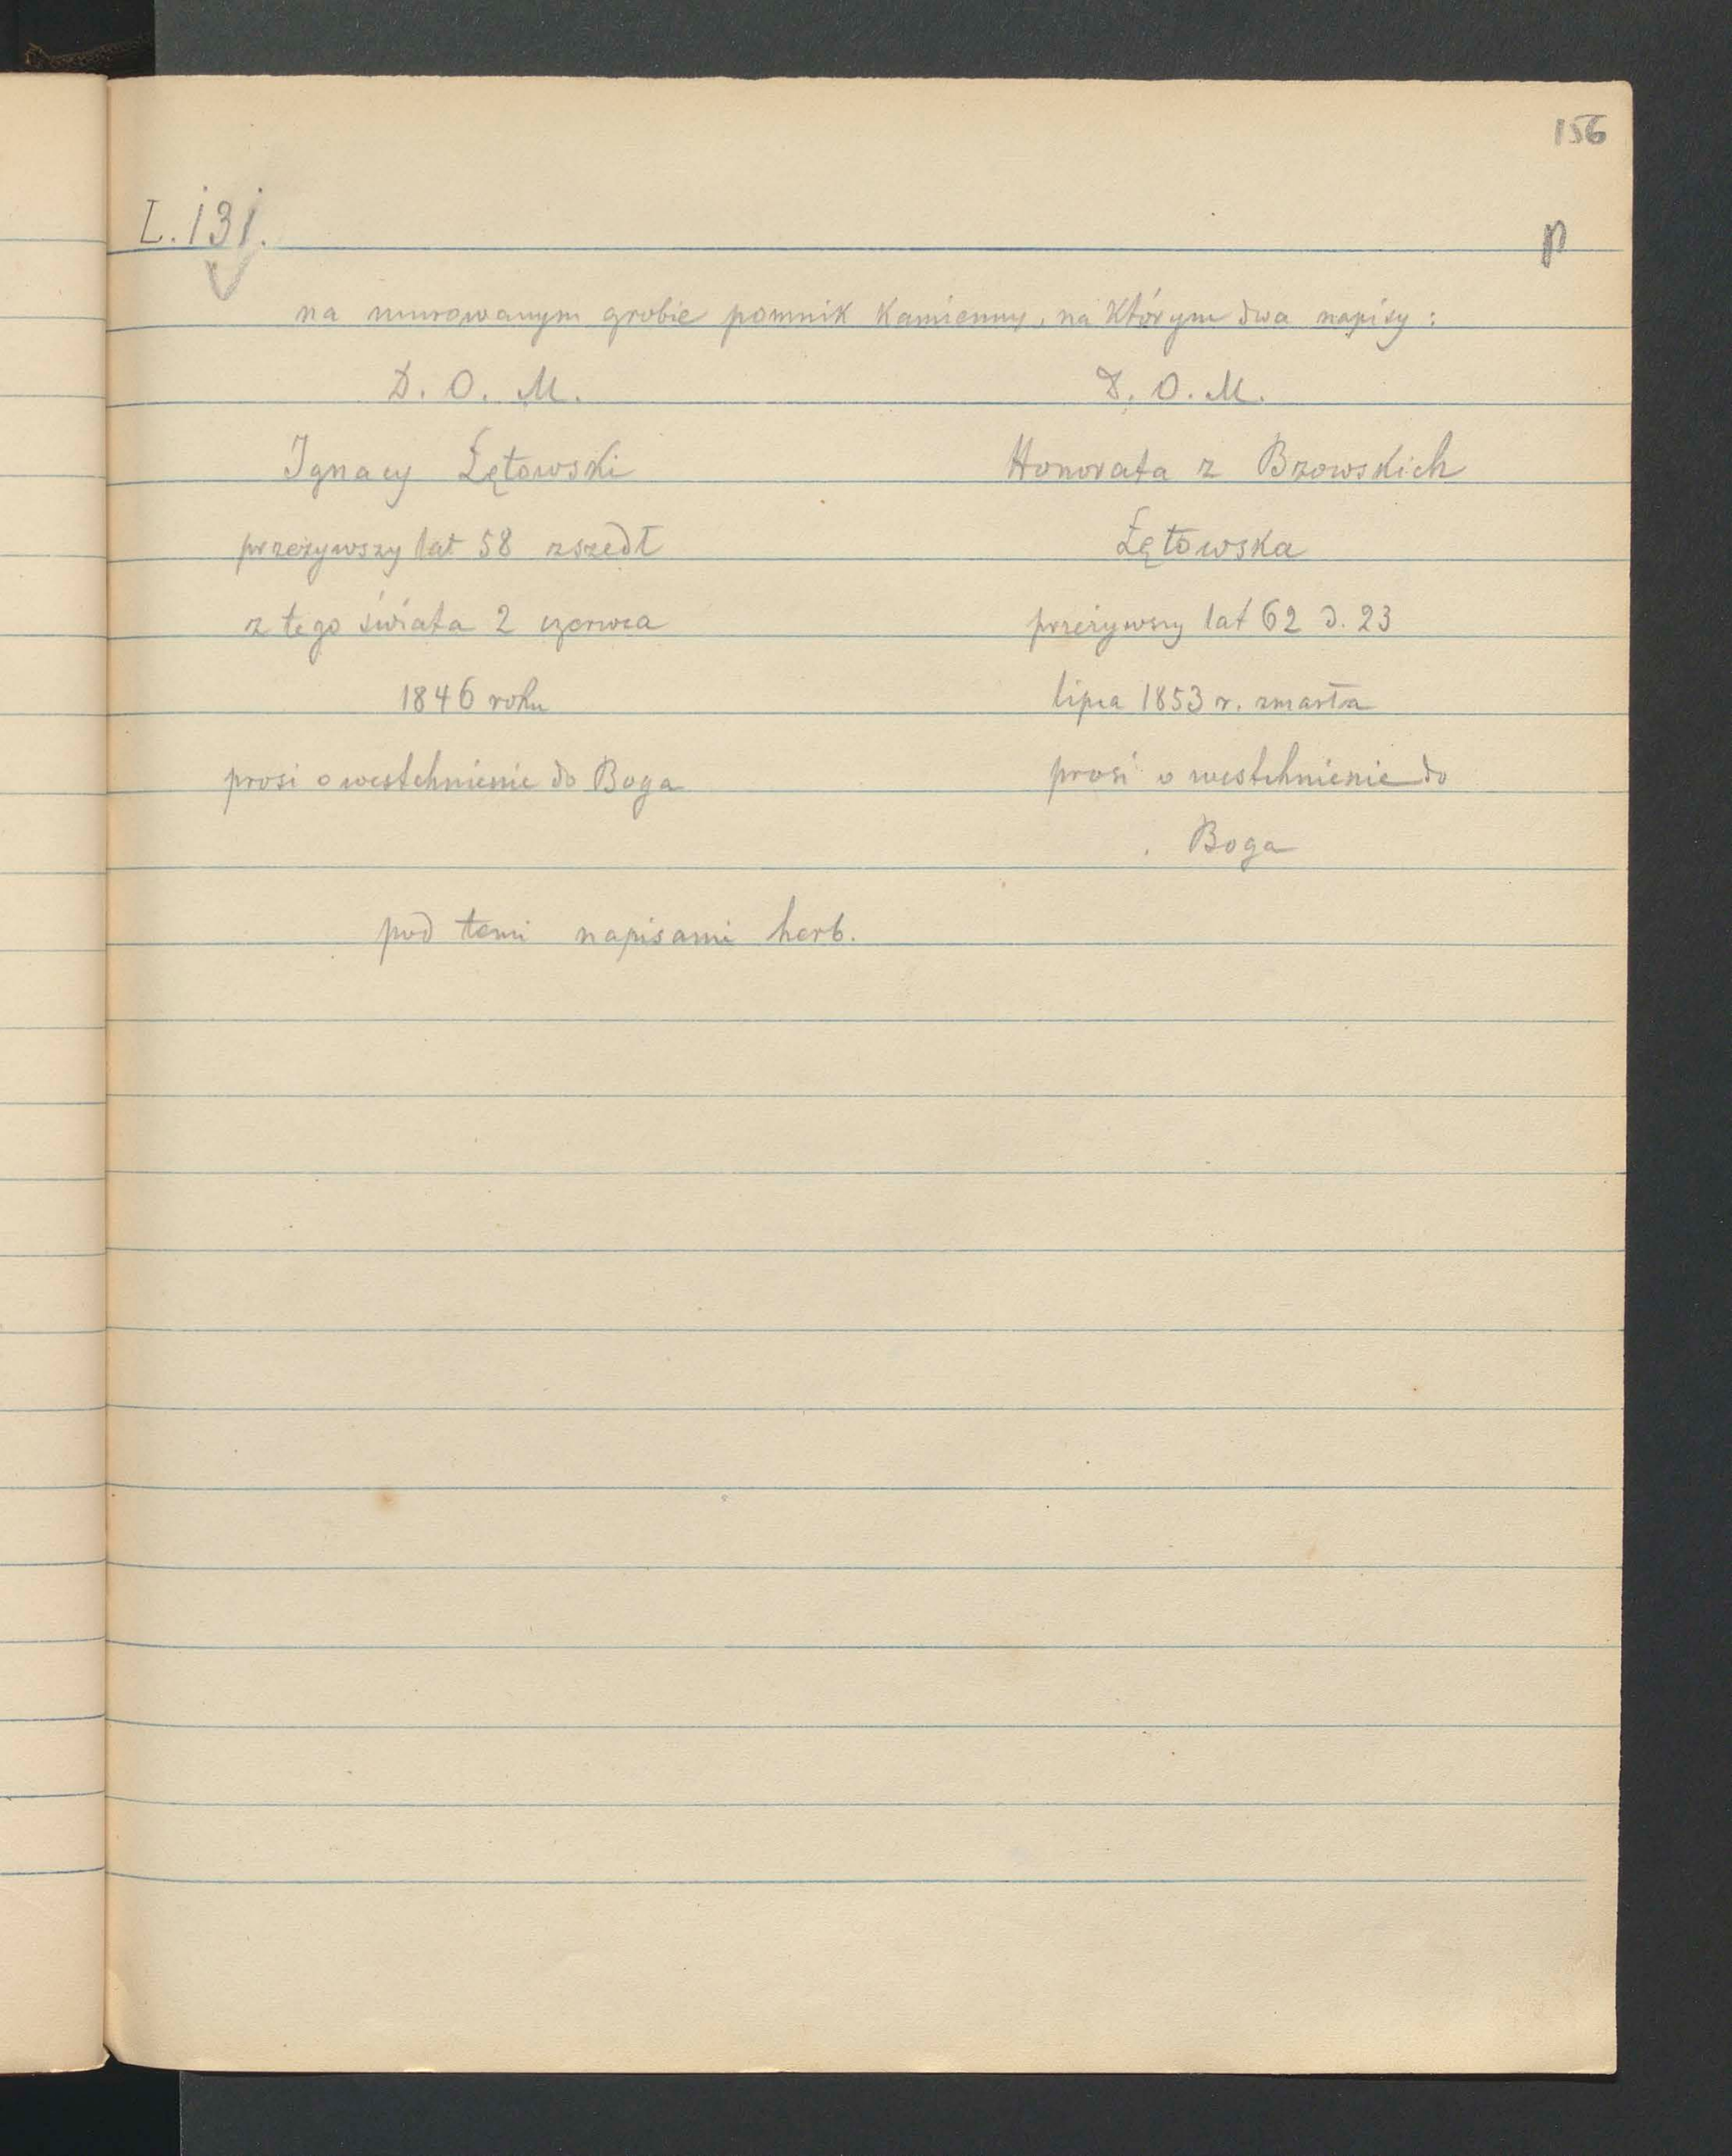 156
L. 131.
p
na murowanym grobie pomnik kamienny, na którym dwa napisy:
D. O. M.
Ignacy Łętowski
przeżywszy lat 58 zszedł
z tego świata 2 czerwca
1846 roku
prosi o westchnienie do Boga
D. O. M.
Honorata z Bzowskich
Łętowska
przeżywszy lat 62 d. 23
lipca 1853 r. zmarła
prosi o westchnienie do
Boga
pod temi napisami herb.